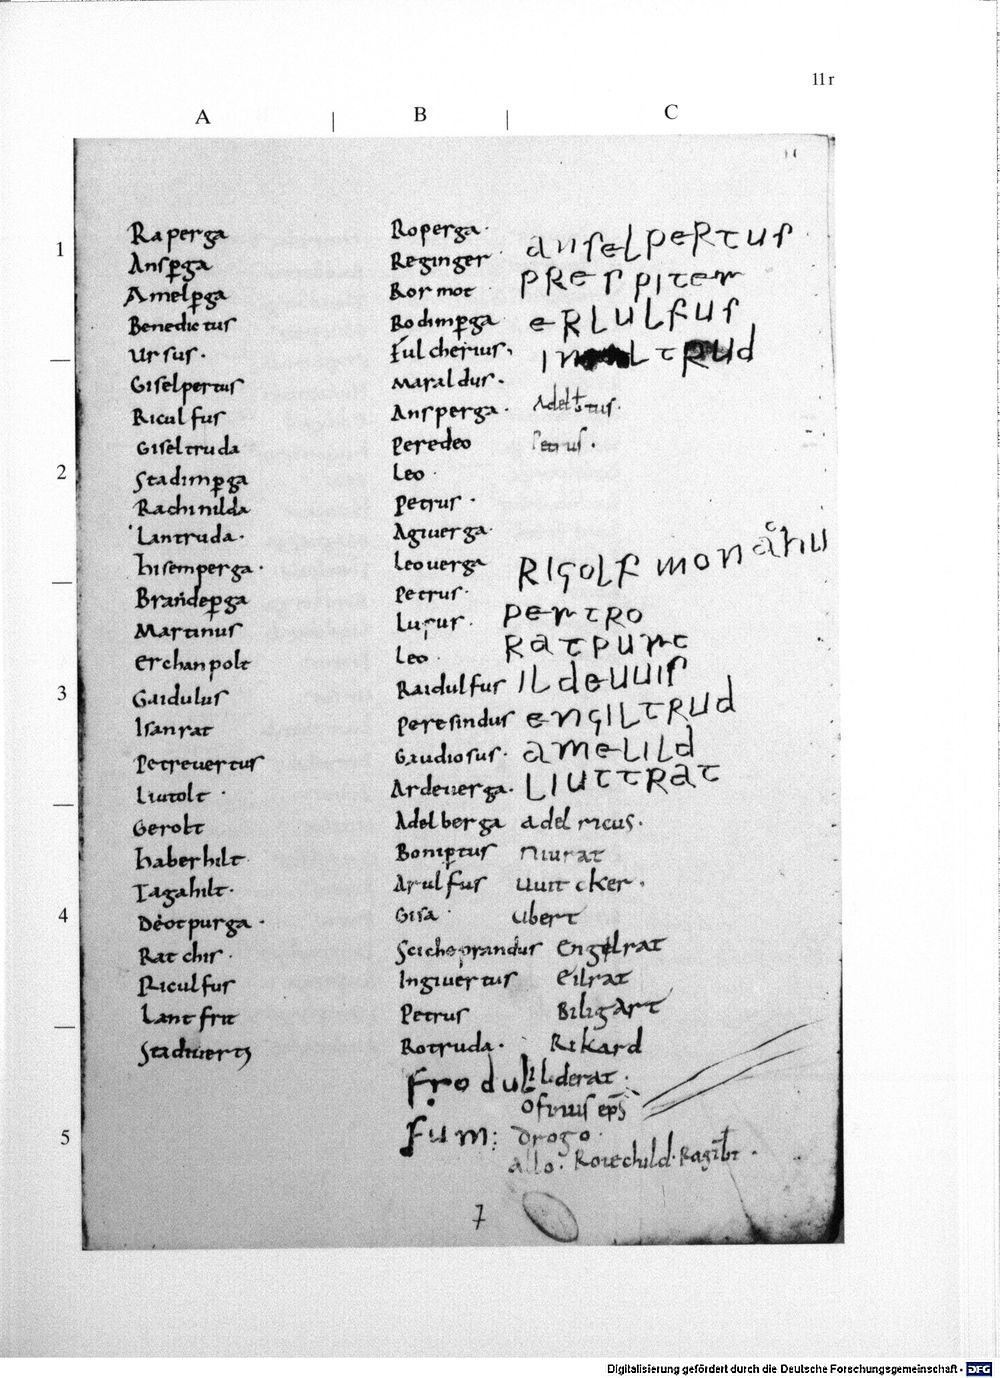 11r
A B C
1
2
3
4
5
Raperga
Ansꝑga
Amelꝑga
Benedictus
Ursus.
Giselpertus
Riculfus
Giseltruda
Stadimꝑga
Rachinilda
Lantruda.
hisemperga.
Brandeꝑga
Martinus
erchanpolt
Gaidulus
Isanrat
Petrevertus
Liutolt.
Gerolt
haberhilt
Tagahilt.
Deotpurga.
Ratchis.
Riculfus
Lantfrit
Roperga.
Reginger
Rormot
Rodimꝑga
Fulcherius,
Maraldus.
Ansperga.
Peredeo
Leo.
Petrus.
Agiuerga.
Leouerga
Petrus.
Lupus.
Leo.
Raidulfus
Peresindus
Gaudiosus.
Ardeuerga.
Adelberga
Boniꝑtus
Arulfus
Gisa.
Ingiuertus
Petrus
Rotruda.
frodul
fum:
anselpertus
PResPiter
eRLULfus
Petrus.
RIGOLF
PertRO
Ratpurt
ILdeuuis
engILtRUd
ameLILd
LIUttRat
adelricus.
Niurat
uuitcker.
ubert
Engelrat
Eilrat
Biligart
Rikard
ilderat.
drogo.
allo. Rotechild.
7
Digitalisierung gefördert durch die Deutsche Forschungsgemeinschaft - DFG